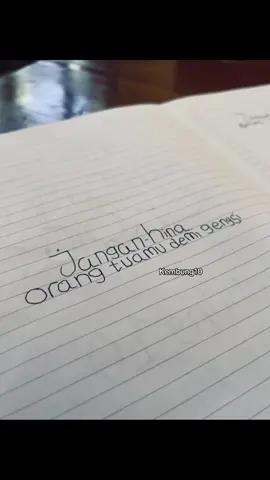 Jangan-hina
orang tuamu demi gengsi
Kembung10